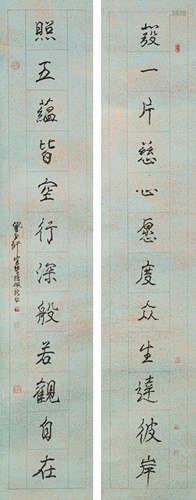 發一片慈心愿度众生達彼岸
照五蘊皆空行深般若觀自在